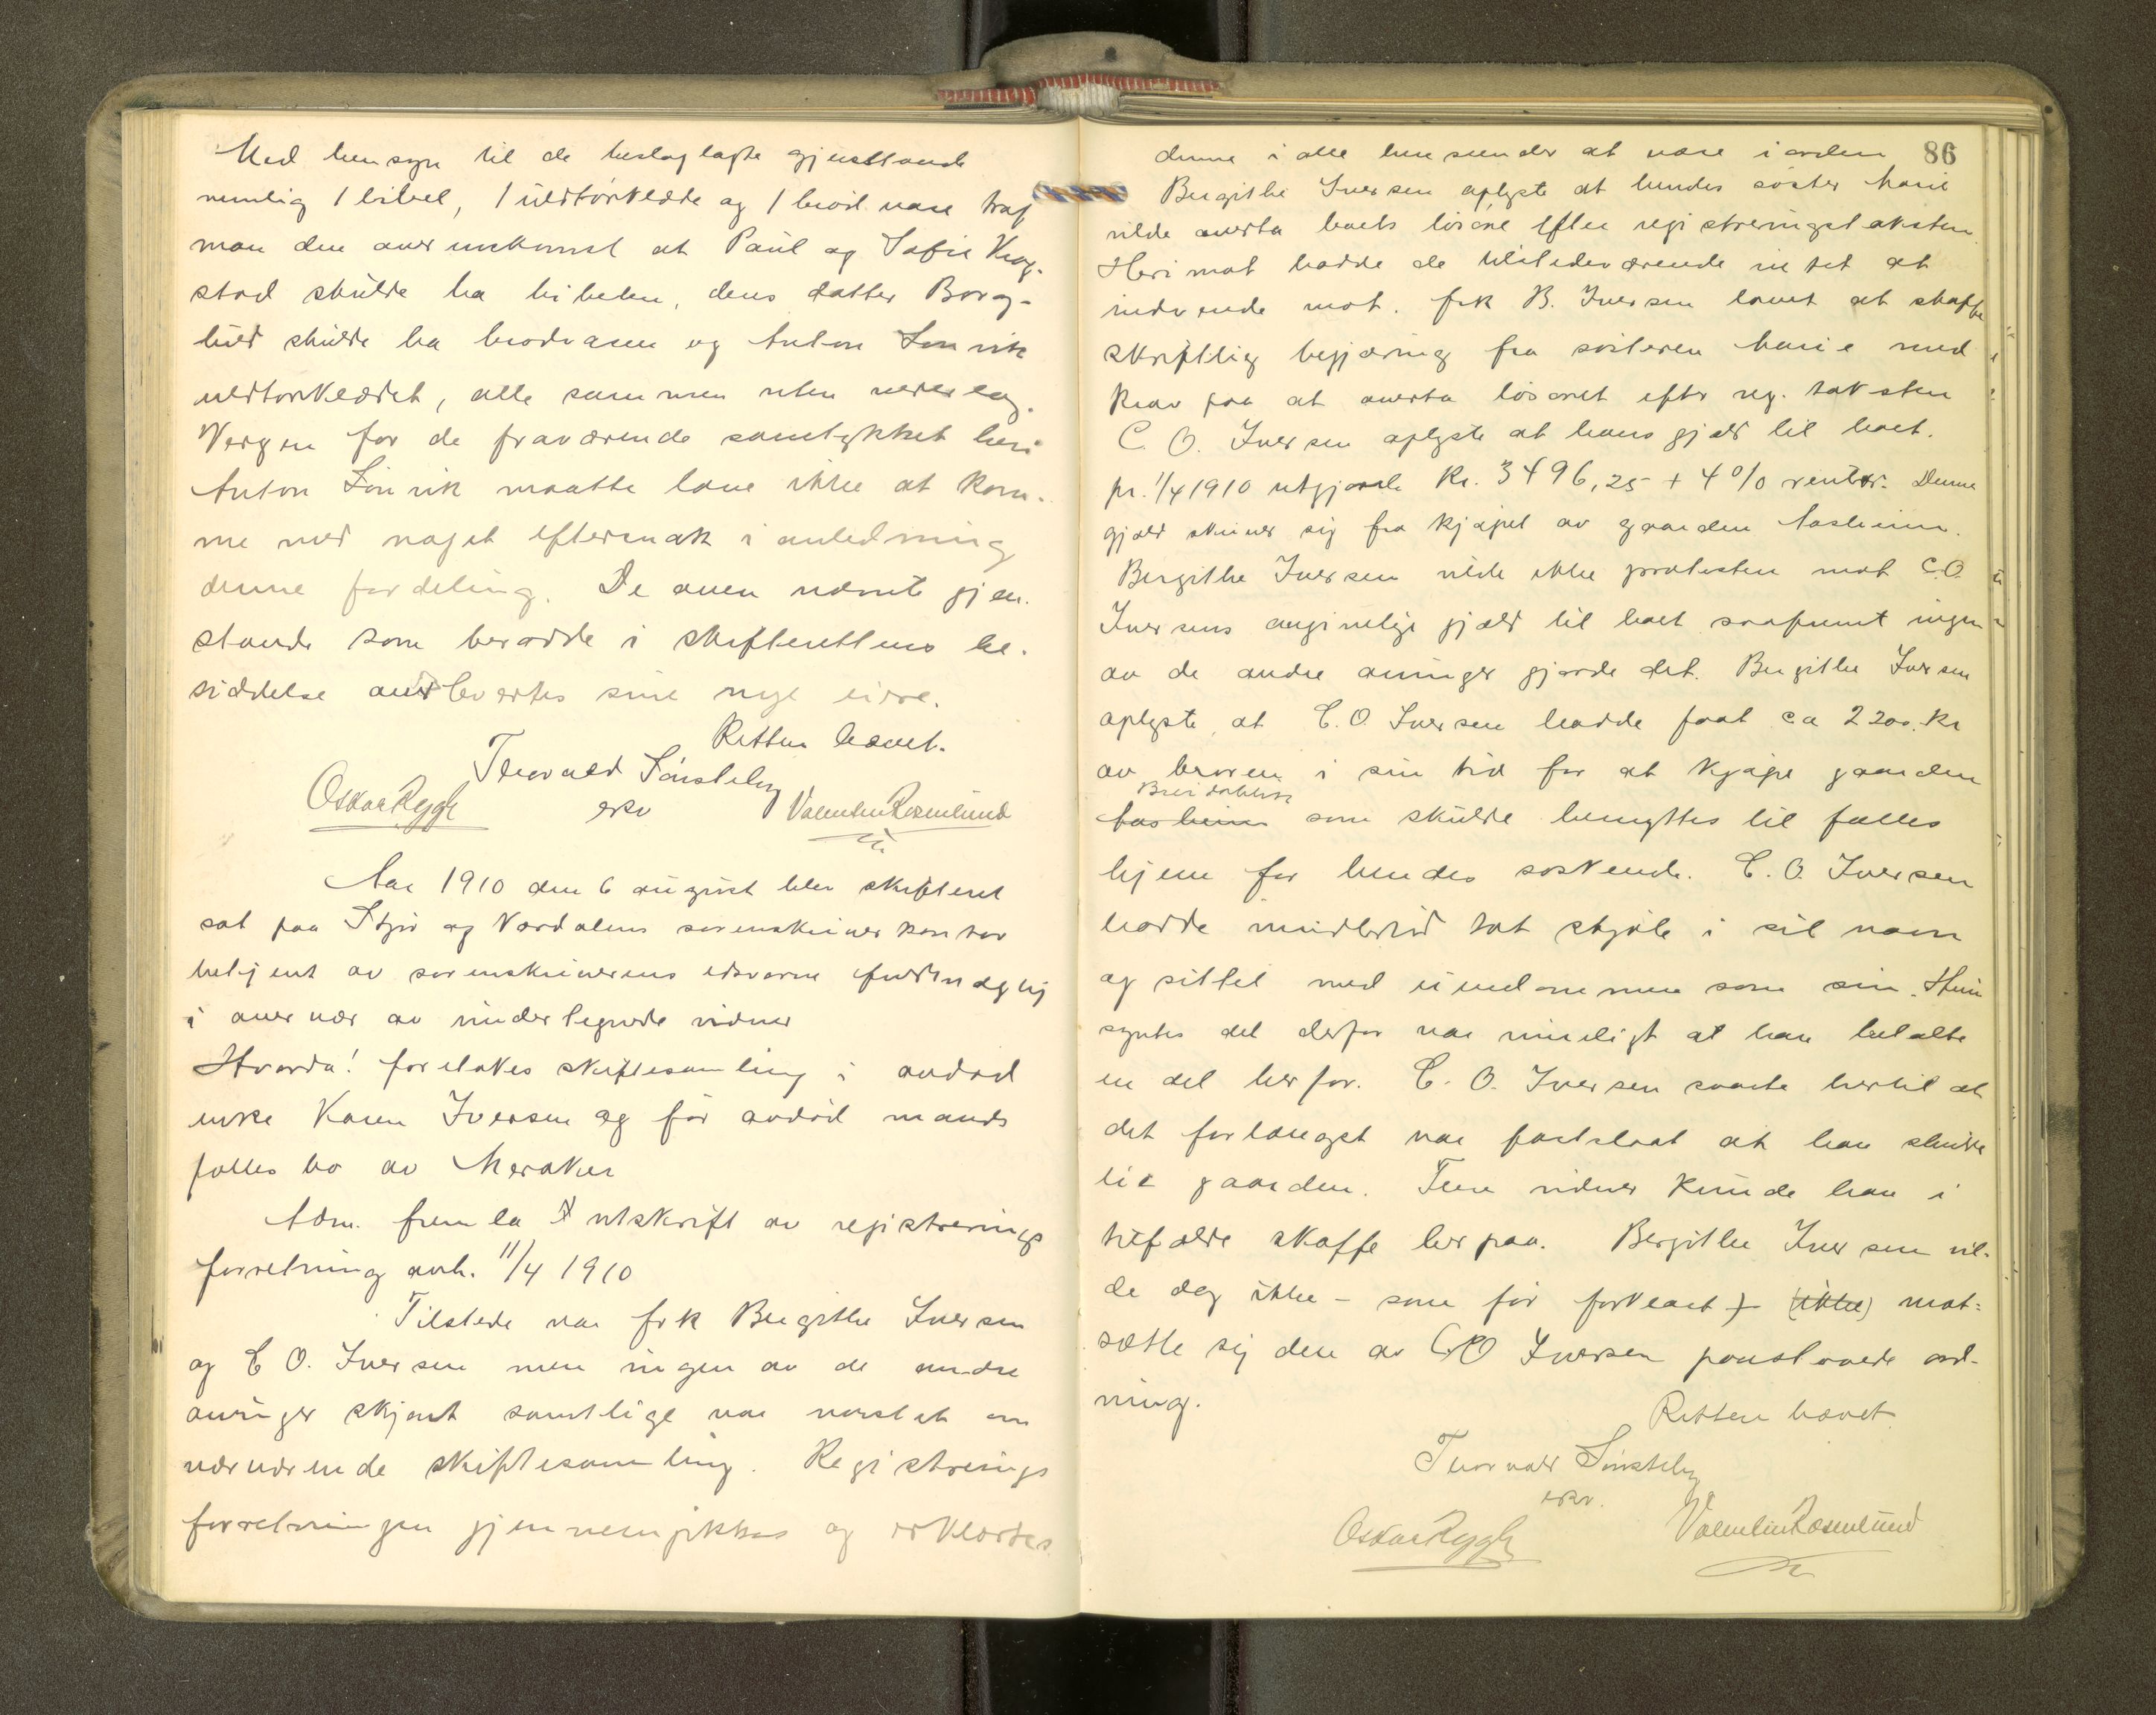 Med hensyn til de beslaglagte gjenstande
nemlig 1 bibel, 1 uldtörklæde og 1 brod vase traf
man den overenskomst at Paul og Sofie Krog-
stad skulde ha bibelen, deres datter Borg-
hild skulde ha brodvasen og Anton Lønvik
uldtørklædet, alle sammen uten vederlag.
Vergen for de fraværende samtykket heri
Anton Lönvik maatte love ikke at kom-
me med noget eftersnak i anledning
denne fordeling. De oven nævnte gjen-
stande som beradde i skifterettens be-
siddelse overlevertes sine nye eiere.
Retten hævet.
Thorvald Sönsteby
eskv
Oskar Rygh
Valentin Rosenlund
Aar 1910 den 6 august blev skifteret
sat paa Stjør og Værdalens sorenskriverkontor
betjent av sorenskriverens edsvorne fuldmægtig
i overvær av undertegnede vidner
Hvorda! foretokes skiftesamling i avdød
enke Karen Iversen og før avdöd mands
fælles bo av Meraker
Adm. fremla utskrift av registrerings
forretning avh. 11/4 1910
Tilstede var frk Bergithe Iversen
og C O. Iversen men ingen av de andre
arvinger skjønt samtlige var varslet om
nærværende skiftesamling. Registrerings
forretningen gjennemgikkes og erklærtes
86
denne i alle henseender at være i orden
Bergithe Iversen oplyste at hendes söster Marie
vilde overta boets lösöre efter registreringstaksten.
Herimot hadde de tilstedeværende intet at
indvende mot. frk B. Iversen lovet at skaffe
skriftlig begjæring fra søsteren Marie med
krav paa at overta lösöret efter reg. taksten
C. O. Iversen oplyste at hans gjæld til boet.
pr. 1/4 1910 utgjorde Kr. 3496,25 + 4 % renter. Denne
gjæld skriver sig fra kjøpet av gaarden Aasheim.
Bergithe Iversen vilde ikke protestere mot C.O.
Iversens angivelige gjæld til boet saafremt ingen
av de andre arvinger gjorde det. Bergithe Iversen
oplyste at C.O. Iversen hadde faat ca 2200 kr
av broren i sin tid for at kjøpe gaarden
Aasheim som skulde benyttes til fælles
hjem for hendes søskende. C. O. Iversen
hadde imidlertid tat skjøte i sit navn
og sittet med eiendommen som sin. Hun
syntes det derfor var rimeligt at han betalte
en del herfor. C. O. Iversen svarte hertil at
det forlængst var fastslaat at han skulde
ha gaarden. Flere vidner kunde han i
tilfælde skaffe herpaa. Bergithe Iversen vil-
de dog ikke - som før forklart - (ikke) mot-
sætte sig den av C.O Iversen paastaaede ord-
ning.
Retten hævet
Thorvald Sönsteby
eskv.
Oskar Rygh
Valentin Rosenlund